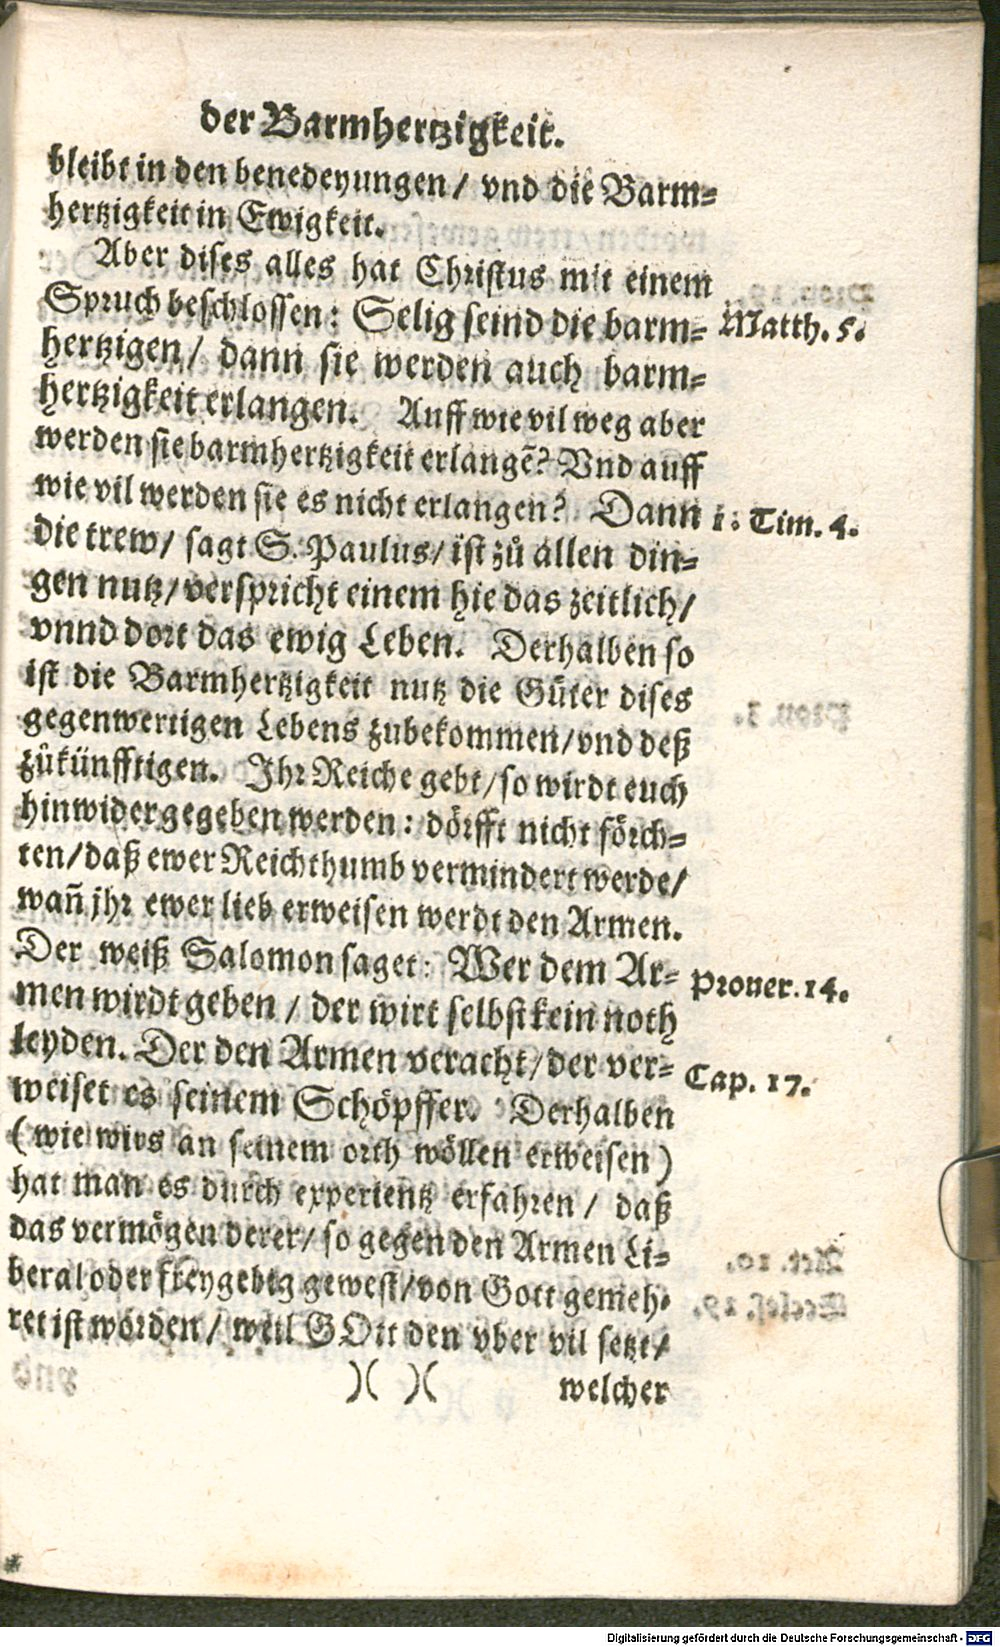 der Barmhertzigkeit.
bleibt in den benedeyungen / vnd die Barm-
hertzigkeit in Ewigkeit.
Aber dises alles hat Christus mit einem
Spruch beschlossen: Selig seind die barm- Matth. 5.
hertzigen / dann sie werden auch barm-
hertzigkeit erlangen. Auff wie vil weg aber
werden sie barmhertzigkeit erlangẽ? Vnd auff
wie vil werden sie es nicht erlangen? Dann 1. Tim. 4.
die trew / sagt S. Paulus / ist zů allen din-
gen nutz / verspricht einem hie das zeitlich /
vnnd dort das ewig Leben. Derhalben so
ist die Barmhertzigkeit nutz die Güter dises
gegenwertigen Lebens zubekommen / vnd deß
zůkünfftigen. Ihr Reiche gebt / so wirdt euch
hinwider gegeben werden: dörfft nicht förch-
ten / daß ewer Reichthumb vermindert werde /
wañ jhr ewer lieb erweisen werdt den Armen.
Der weiß Salomon saget: Wer dem Ar- Prouer. 14.
men wirdt geben / der wirt selbst kein noth
leyden. Der den Armen veracht / der ver- Cap. 17.
weiset es seinem Schöpffer. Derhalben
(wie wirs an seinem orth wöllen erweisen)
hat man es durch experientz erfahren / daß
das vermögen derer / so gegen den Armen Li-
beral oder freygebig gewest / von Gott gemeh-
ret ist worden / weil GOtt den vber vil setzt /
)( )( welcher
Digitalisierung gefördert durch die Deutsche Forschungsgemeinschaft - DFG